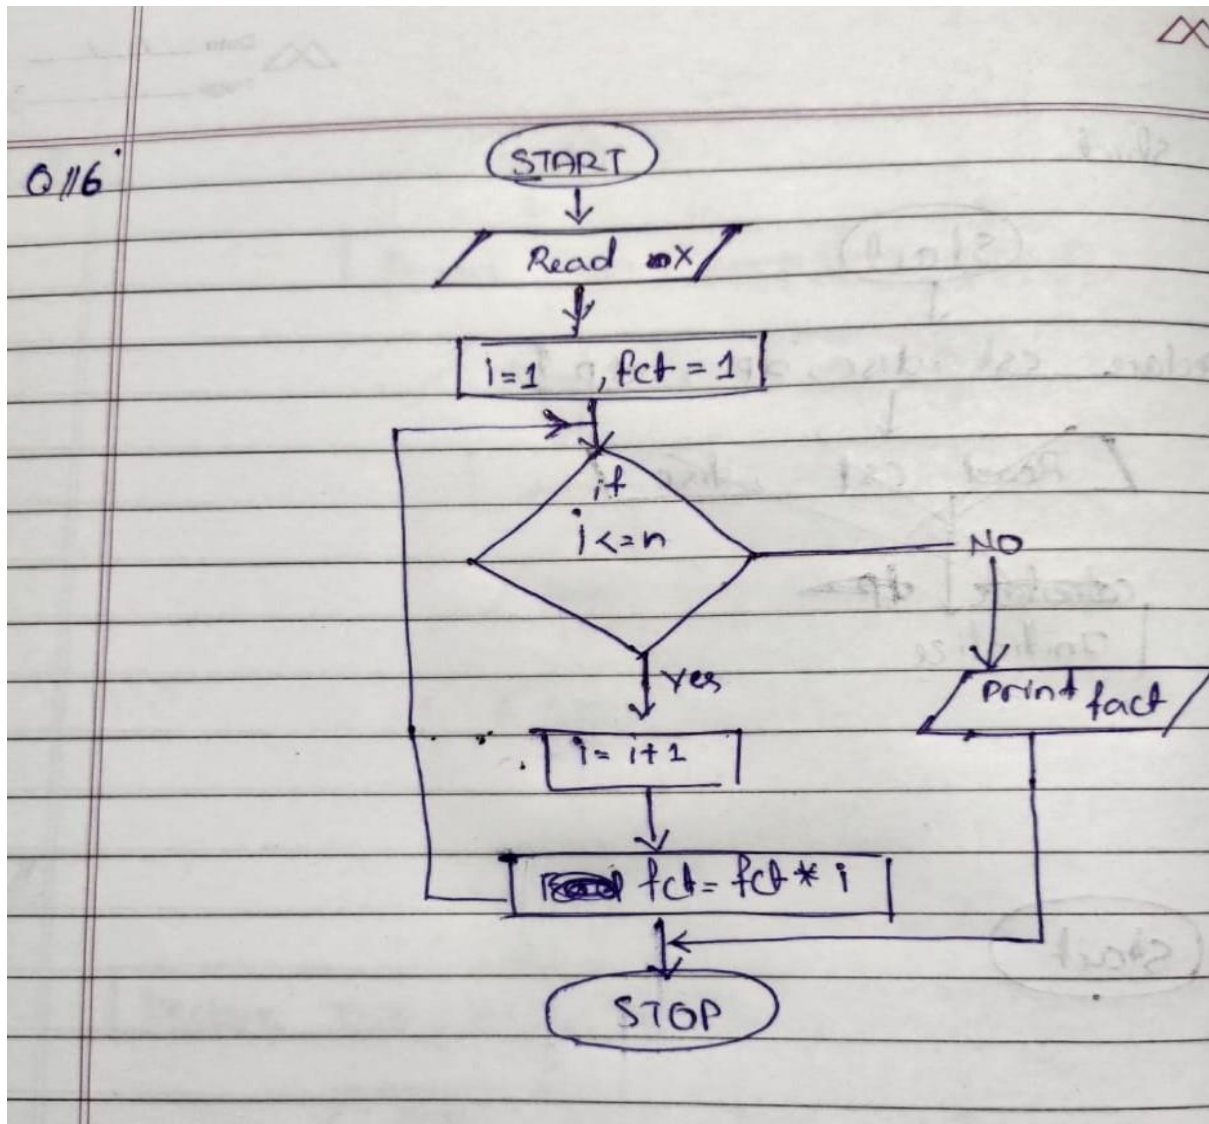 Q116
START
Read x
i=1 , fct = 1
if
i<=n
NO
Yes
print fact
i= i+1
fct= fct * i
STOP